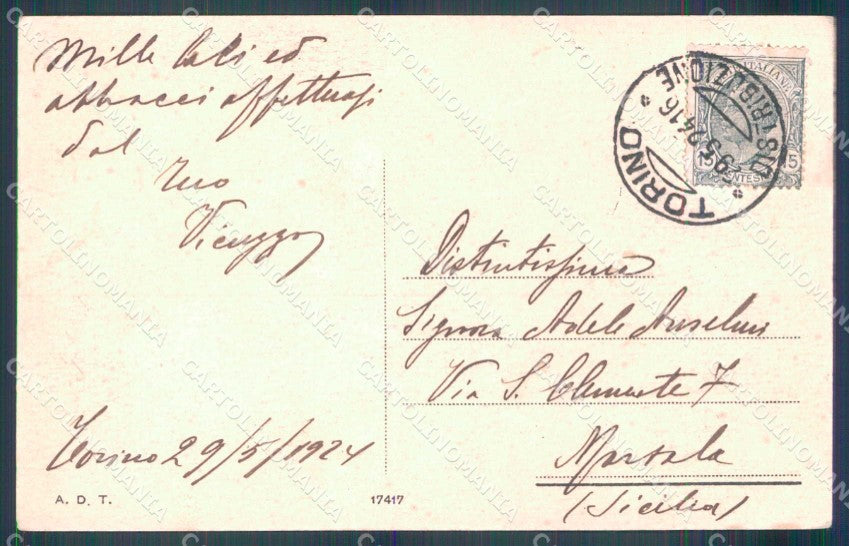 Mille baci ed
abbracci affettuosi
dal
tuo
Vicuzzo
Torino 29/5/1924
A. D. T.
17417
TORINO
DISTRIBUZIONE
15
Distintissima
Signora Adele Anselmi
Via S. Clemente 7
Marsala
(Sicilia)
CARTOLINOMANIA